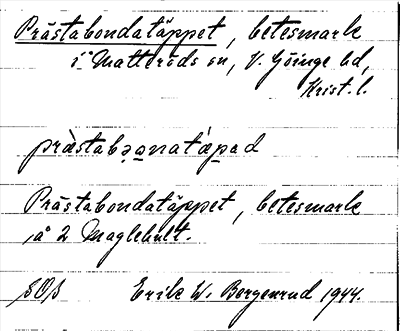 Prästabondatäppet, betesmark
i Matteröds sn, V. Göinge hd,
Krist. l.
præ̀stabǝo̲natǽpad
Prästabondatäppet, betesmark
å 2 Maglehult.
SOſs Erik W. Borgenrud 1944.